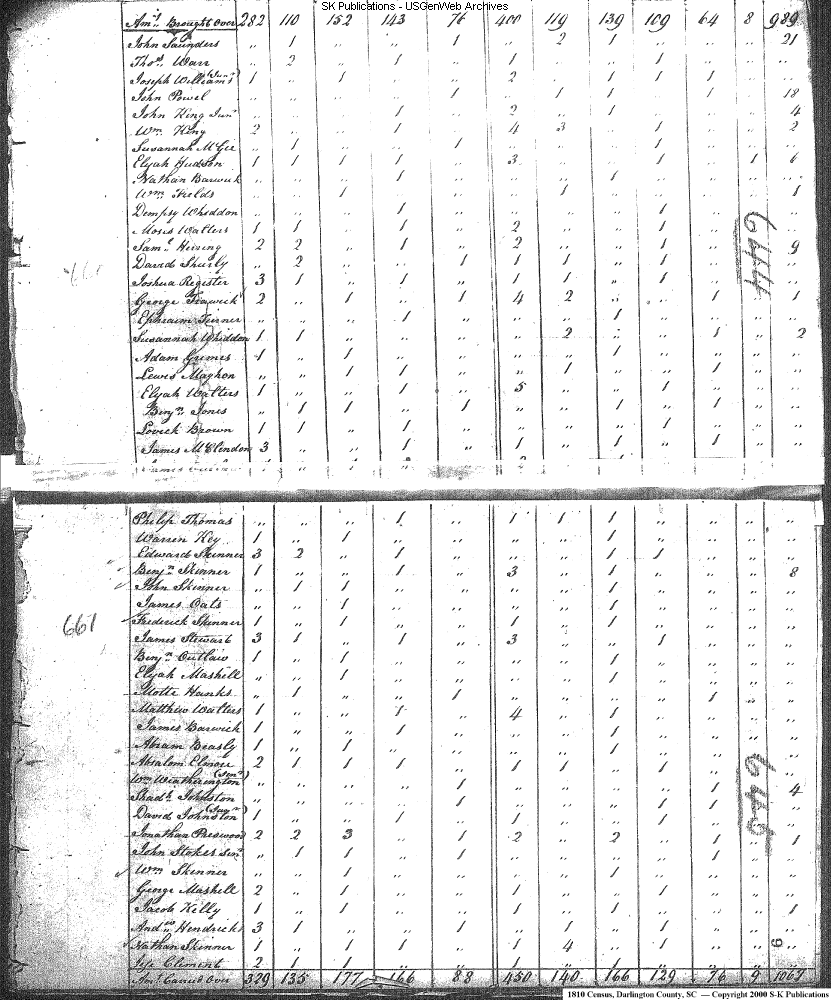 SK Publications - USGenWeb Archives
Amt. Brought Over 282 110 152 143 76 400 119 139 109 64 8 989
John Saunders " 1 " " 1 " 2 1 " " " 21
Thos. Warr " 2 " 1 " 1 " " 1 " " "
Joseph Williams (Junr) 1 " 1 " " 2 " 1 1 1 " "
John Powel " " " " 1 " 1 1 " 1 " 18
John King Junr " " " 1 " 2 " 1 " " " 4
Wm. King 2 " " 1 " 4 3 " 1 " " 2
Susannah McGee " 1 " " 1 " " " 1 " " "
Elijah Hudson 1 1 1 1 " 3 " " 1 " 1 6
Nathan Barwick " " " 1 " " " 1 " " " "
Wm. Fields " " 1 " " " 1 " " " " 1
Dempsy Whiddon " " " 1 " " " " 1 " " "
Moses Walters 1 1 " 1 " 2 " " 1 " " "
Saml. Hewing 2 2 " 1 " 2 " " 1 " " 9
David Shurly " 2 " " 1 1 1 1 " 1 " "
Joshua Register 3 1 " 1 " 1 1 " 1 " " "
George Trawick 2 " 1 " 1 4 2 " " 1 " 1
Ephraim Turner " " " 1 " " " 1 " " " "
Susannah Whiddon 1 1 " " " " 2 " " 1 " 2
Adam Grimes 1 " 1 " " " " 1 " " " "
Lewis Maghon " " 1 1 " " 1 " " 1 " "
Elijah Walters 1 " " 1 " 5 " " 1 " " "
Benjn. Jones " 1 1 " 1 " " 1 " 1 " "
Lovick Brown 1 1 " 1 " 1 " " 1 " " "
James McClendon 3 " " 1 " 1 " 1 " 1 " "
644
Philip Thomas " " " 1 " 1 1 1 " " " "
Warren Key 1 " 1 " " " " 1 " " " "
Edward Skinner 3 2 " 1 " " " 1 1 " " "
Benjn. Skinner 1 " " 1 " 3 " 1 " " " 8
John Skinner " 1 1 " " " " 1 " " " "
James Oats " " 1 " " " " 1 " " " "
Frederick Skinner 1 " 1 " " 1 " 1 " " " "
James Stewart 3 1 " 1 " 3 " " 1 " " "
Benjn. Outlaw 1 " 1 " " " " 1 " " " "
Elijah Mashell " " 1 " " " " 1 " " " "
Motte Hanks " 1 " " 1 " " " " 1 " "
Matthew Walters 1 " " 1 " 4 " 1 " " " "
James Barwick 1 " " 1 " " " 1 " " " "
Abram Beasly 1 " 1 " " " " 1 " " " "
Absalom Elmore 2 1 1 1 " 1 1 " 1 " " "
Wm. Weatherington (Senr) " " " " 1 " " " " 1 " 4
Shadk. Johnston " " " " 1 " " " 1 1 " "
David Johnston (Junr) 1 " " 1 " 1 " " 1 " " "
Jonathan Preswood 2 2 3 " 1 2 " 2 " 1 " 1
John Stokes Senr " 1 1 " 1 " " " " 1 " "
Wm. Skinner " " 1 " " " " 1 " " " "
George Mashell 2 " 1 " " 1 " " 1 " " "
Jacob Kelly 1 " 1 " " 1 " 1 " " " 1
Andw. Hendricks 3 1 " " 1 " 1 " " 1 " "
Nathan Skinner 1 " 1 1 " 1 4 " 1 " " 9
Jesse Clement 2 1 1 " " 1 " 1 " " " "
Amt. Carried Over 329 135 177 166 88 450 140 166 129 76 9 1067
661
645
1810 Census, Darlington County, SC — Copyright 2000 S-K Publications